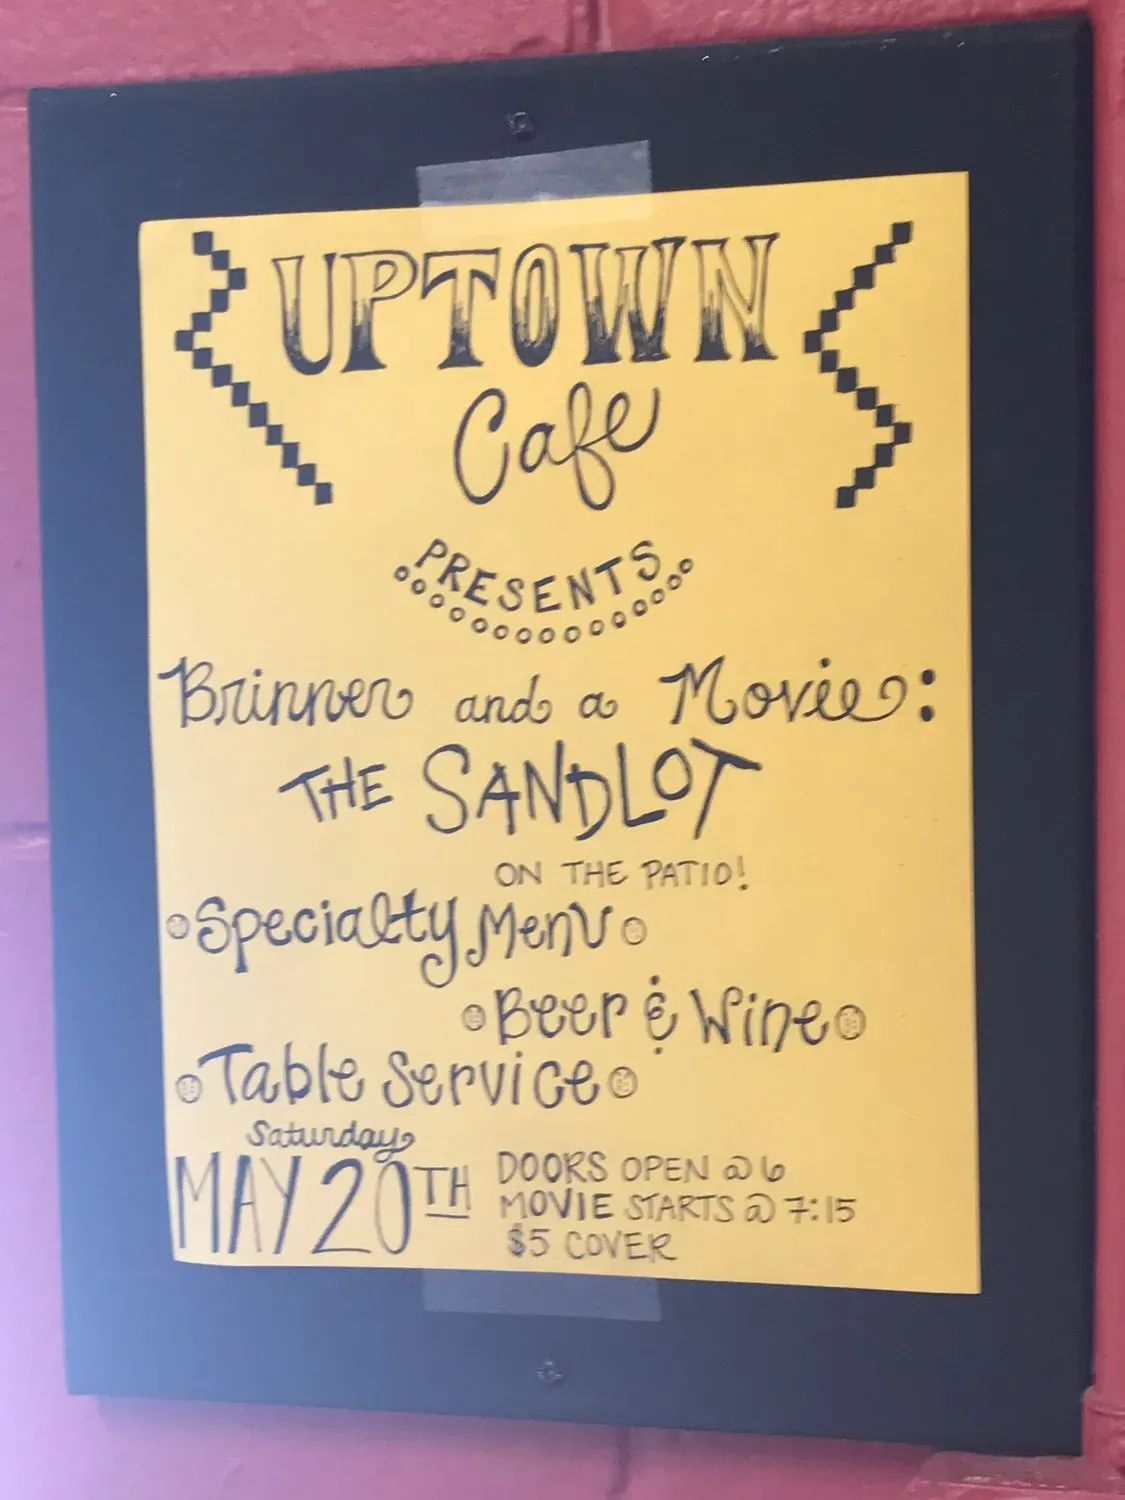 UPTOWN
Cafe
PRESENTS
Brinner and a Movie:
THE SANDLOT
ON THE PATIO!
Specialty Menu
Beer & Wine
Table Service
Saturday
MAY 20TH
DOORS OPEN @ 6
MOVIE STARTS @ 7:15
$5 COVER